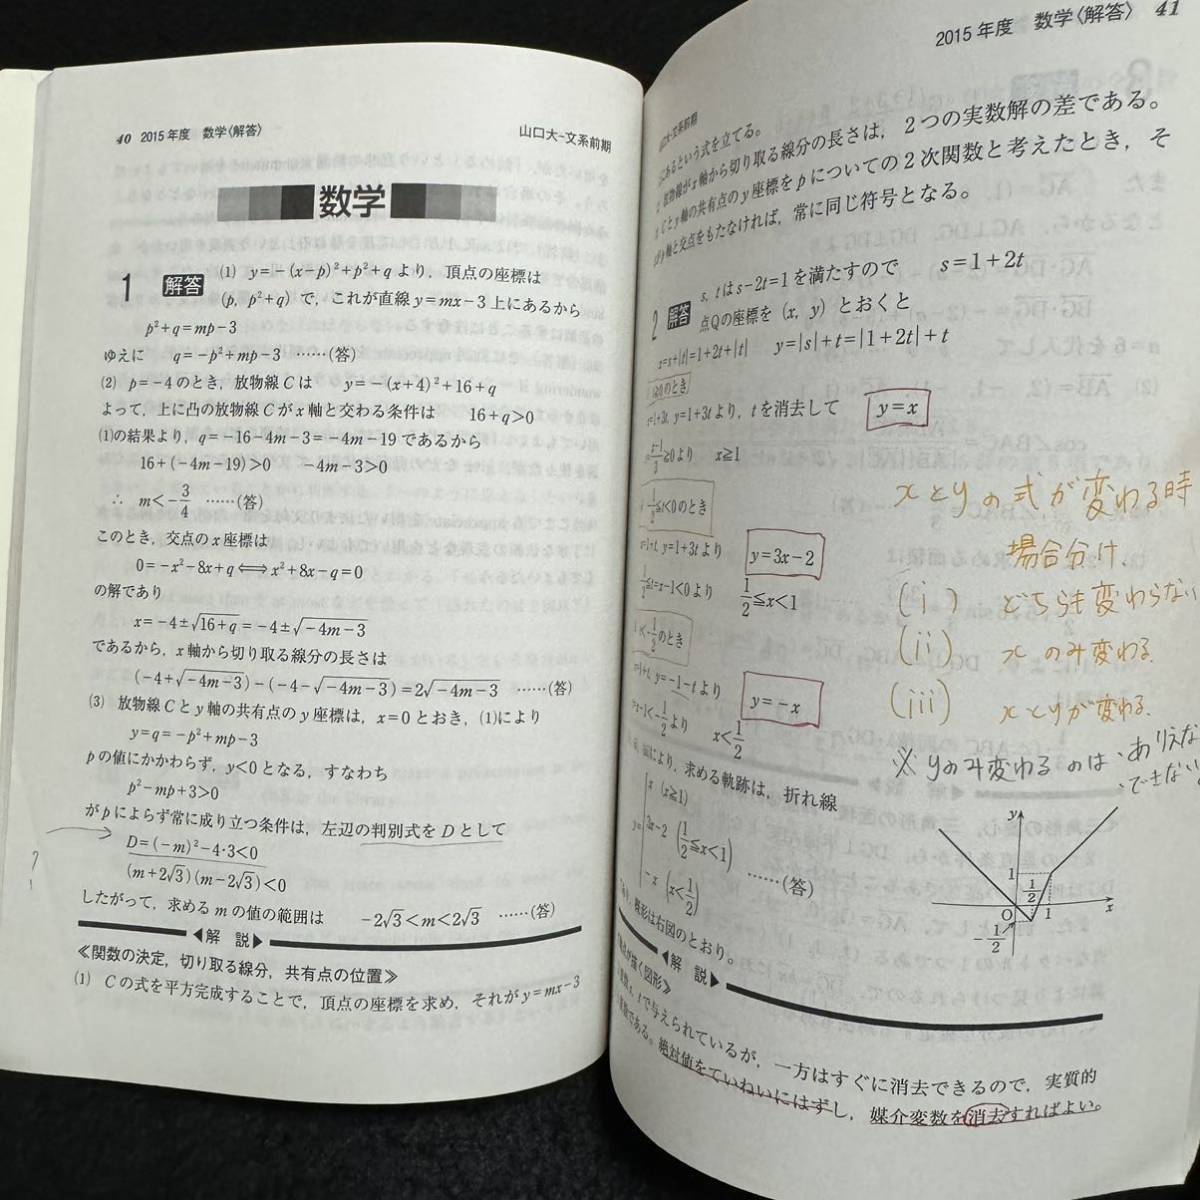 40 2015年度 数学〈解答〉
山口大-文系前期
数学
1 解答 (1) y=-(x-p)²+p²+q より，頂点の座標は
(p, p²+q) で，これが直線 y=mx-3 上にあるから
p²+q=mp-3
ゆえに q=-p²+mp-3 ……(答)
(2) p=-4 のとき，放物線Cは y=-(x+4)²+16+q
よって，上に凸の放物線Cがx軸と交わる条件は 16+q>0
(1)の結果より，q=-16-4m-3=-4m-19 であるから
16+(-4m-19)>0 -4m-3>0
∴ m<-3/4 ……(答)
このとき，交点のx座標は
0=-x²-8x+q⟺x²+8x-q=0
の解であり
x=-4±√16+q=-4±√-4m-3
であるから，x軸から切り取る線分の長さは
(-4+√-4m-3)-(-4-√-4m-3)=2√-4m-3 ……(答)
(3) 放物線Cとy軸の共有点のy座標は，x=0 とおき，(1)により
y=q=-p²+mp-3
pの値にかかわらず，y<0 となる，すなわち
p²-mp+3>0
がpによらず常に成り立つ条件は，左辺の判別式をDとして
D=(-m)²-4·3<0
(m+2√3)(m-2√3)<0
したがって，求めるmの値の範囲は -2√3<m<2√3 ……(答)
◀解 説▶
≪関数の決定，切り取る線分，共有点の位置≫
(1) Cの式を平方完成することで，頂点の座標を求め，それがy=mx-3
2015年度 数学〈解答〉 41
山口大-文系前期
にあるという式を立てる。
放物線がx軸から切り取る線分の長さは，2つの実数解の差である。
Cとy軸の共有点のy座標をpについての2次関数と考えたとき，そ
軸と交点をもたなければ，常に同じ符号となる。
2 解答 s, tはs-2t=1を満たすので s=1+2t
点Qの座標を (x, y) とおくと
x=s+|t|=1+2t+|t| y=|s|+t=|1+2t|+t
≧0のとき
x=1+3t, y=1+3t より，tを消去して y=x
≧0より x≧1
-1/2≦t<0のとき
x=1+t, y=1+3t より y=3x-2
-1/2≦t=x-1<0より 1/2≦x<1
t<-1/2のとき
x=1+t, y=-1-t より y=-x
t=x-1<-1/2より x<1/2
により，求める軌跡は，折れ線
y= x (x≧1)
3x-2 (1/2≦x<1)
-x (x<1/2)
……(答)
概形は右図のとおり。
xとyの式が変わる時
場合分け.
(i) どちらも変わらない
(ii) xのみ変わる.
(iii) xとyが変わる.
※yのみ変わるのは、ありえな
・できない
y
1
1/2
O
1
x
-1/2
◀解 説▶
点が描く図形≫
tで与えられているが，一方はすぐに消去できるので，実質的
である。絶対値をていねいにはずし，媒介変数を消去すればよい。